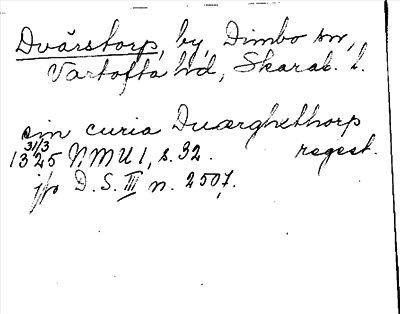 Dvärstorp, by, Dimbo sn,
Vartofta hd, Skarab. l.
sin curia Duærghxthorp
31/3
1325 NMU 1, s. 32. regest.
jfr D. S. III n. 2507.